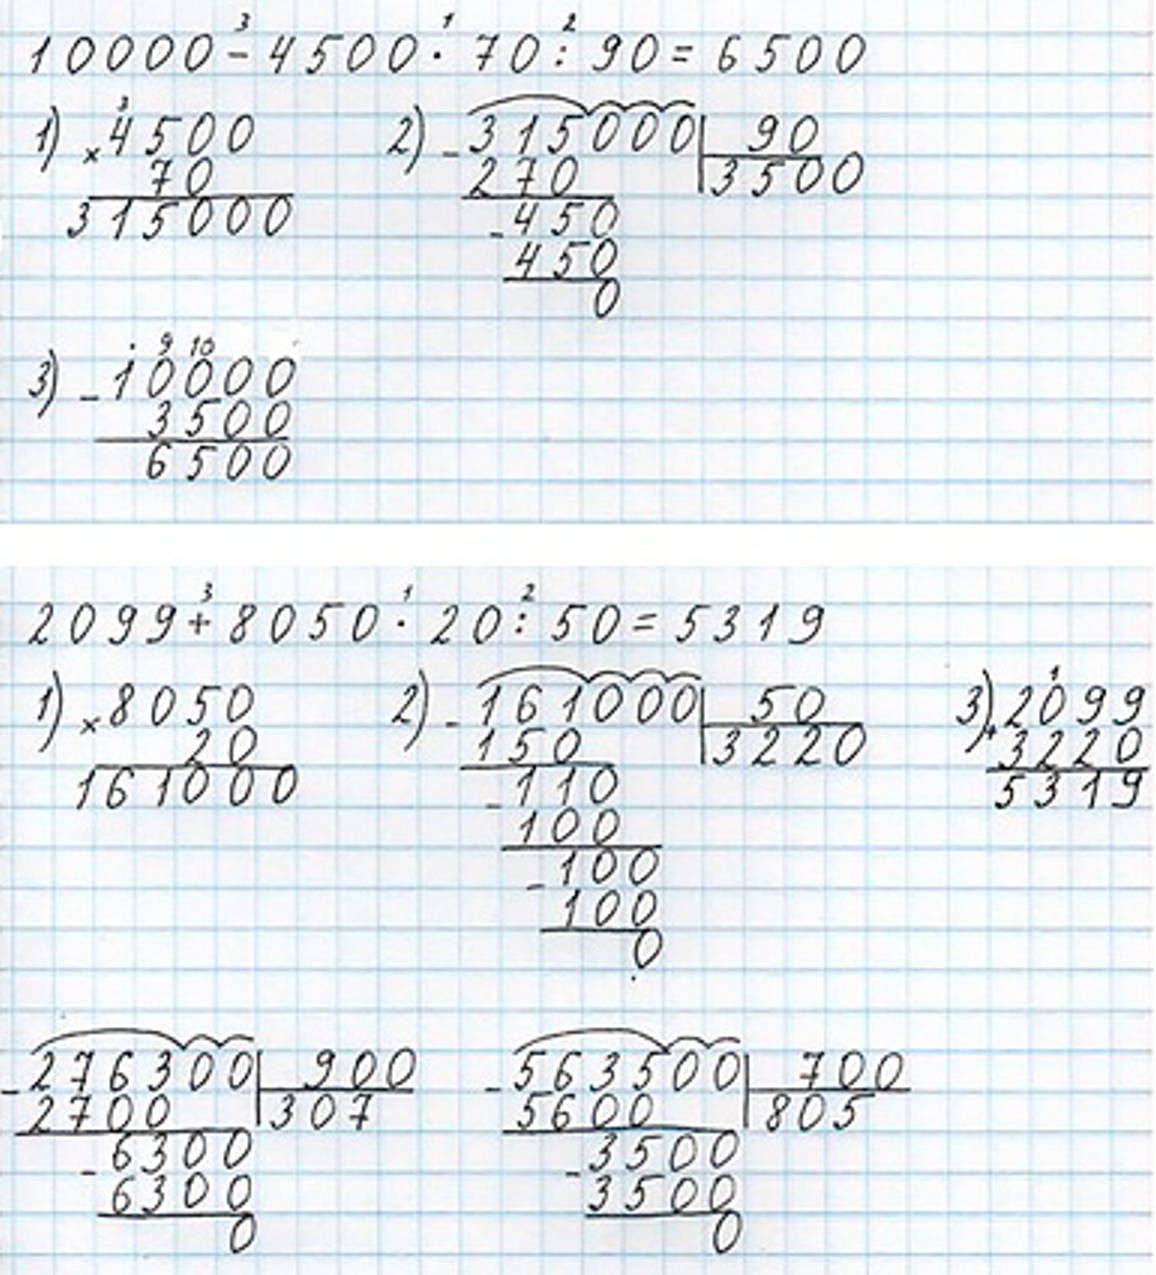 3 1 2
10000 - 4500 · 70 : 90 = 6500
1) 3
× 4500
70
315000
2) - 315000 | 90
270 | 3500
- 450
450
0
3) · 9 10
- 10000
3500
6500
3 1 2
2099 + 8050 · 20 : 50 = 5319
1) × 8050
20
161000
2) - 161000 | 50
150 | 3220
- 110
100
- 100
100
0
3) 1
+ 2099
3220
5319
- 276300 | 900
2700 | 307
- 6300
6300
0
- 563500 | 700
5600 | 805
- 3500
3500
0